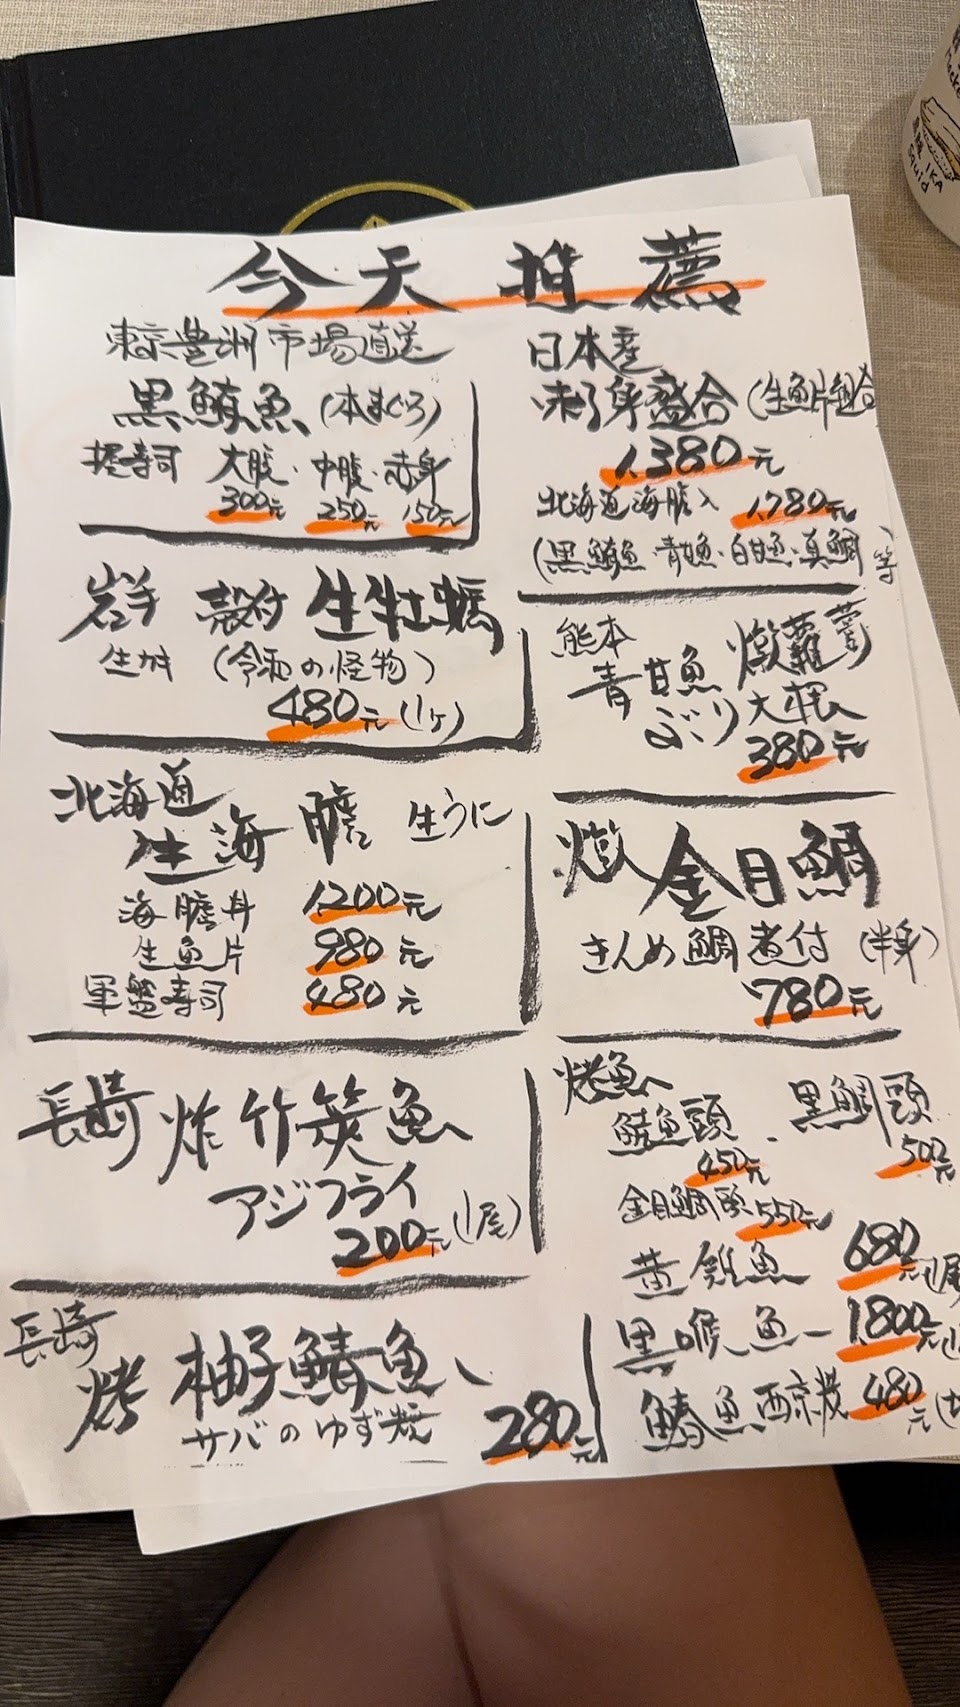 今天推薦
東京豊洲市場直送
黒鮪魚(本まぐろ)
握寿司 大腹・中腹・赤身
300元 250元 150元
岩手 殻付生牡蠣
(令和の怪物)
480元(1ヶ)
北海道
生海膽 生うに
海膽丼 1,200元
生魚片 980元
軍艦寿司 480元
長崎 炸竹筴魚
アジフライ
200元(1尾)
長崎
烤 柚子鯖魚
サバのゆず焼
280元
日本産
刺身盛合(生魚片組合
1,380元
北海道海膽入 1,780元
(黒鮪魚・青甘魚・白甘魚・真鯛 等)
熊本
青甘魚 燉蘿蔔
ぶり大根
380元
燉 金目鯛
きんめ鯛煮付(半身)
780元
烤魚
鮭魚頭 450元
黒鯛頭 500元
金目鯛頭 550元
黄雞魚 680元(1尾
黒喉魚 1,800元
鰆魚西京燒 480元
IKA
Squid